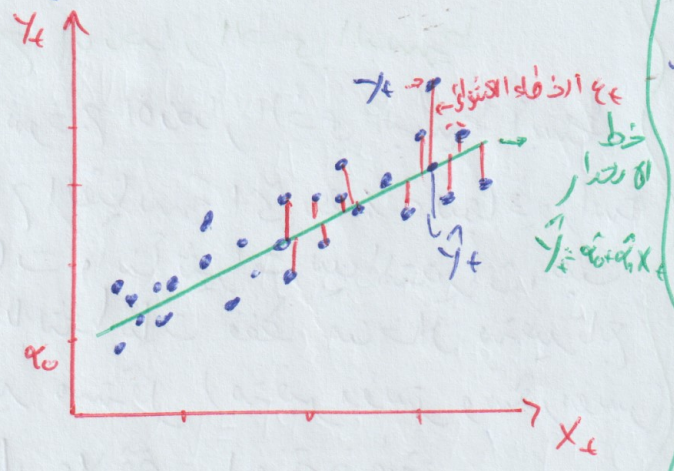 Yₜ
Yₜ
الاخطاء العشوائي εₜ
خط
الانحدار
Ŷₜ = α̂₀ + α̂₁ Xₜ
Ŷₜ
α₀
Xₜ